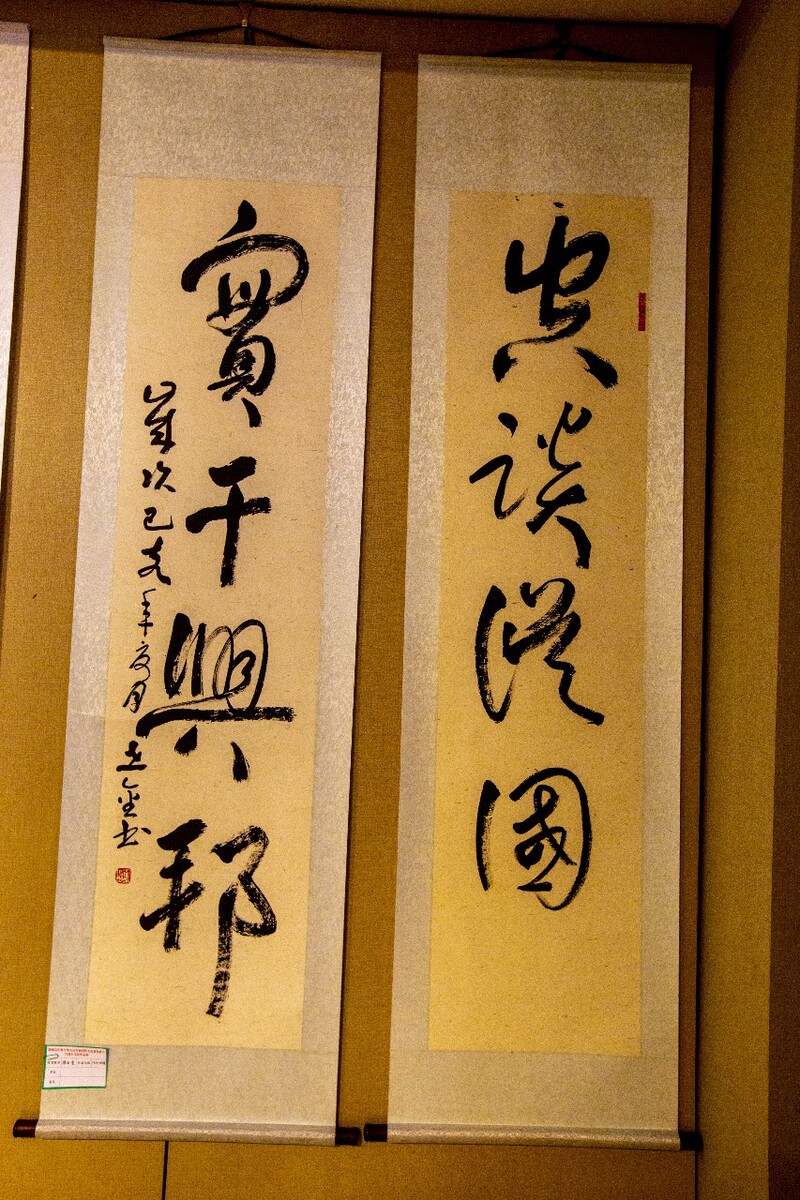 空談誤國
實干興邦
歲次己亥年夏月金书